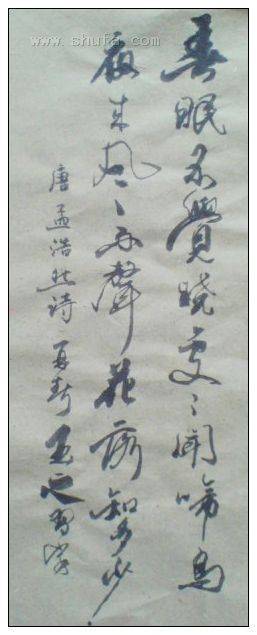 www.shufa.com
春眠不覺曉處〻聞啼鳥
夜来风雨聲花落知多少
唐孟浩然诗